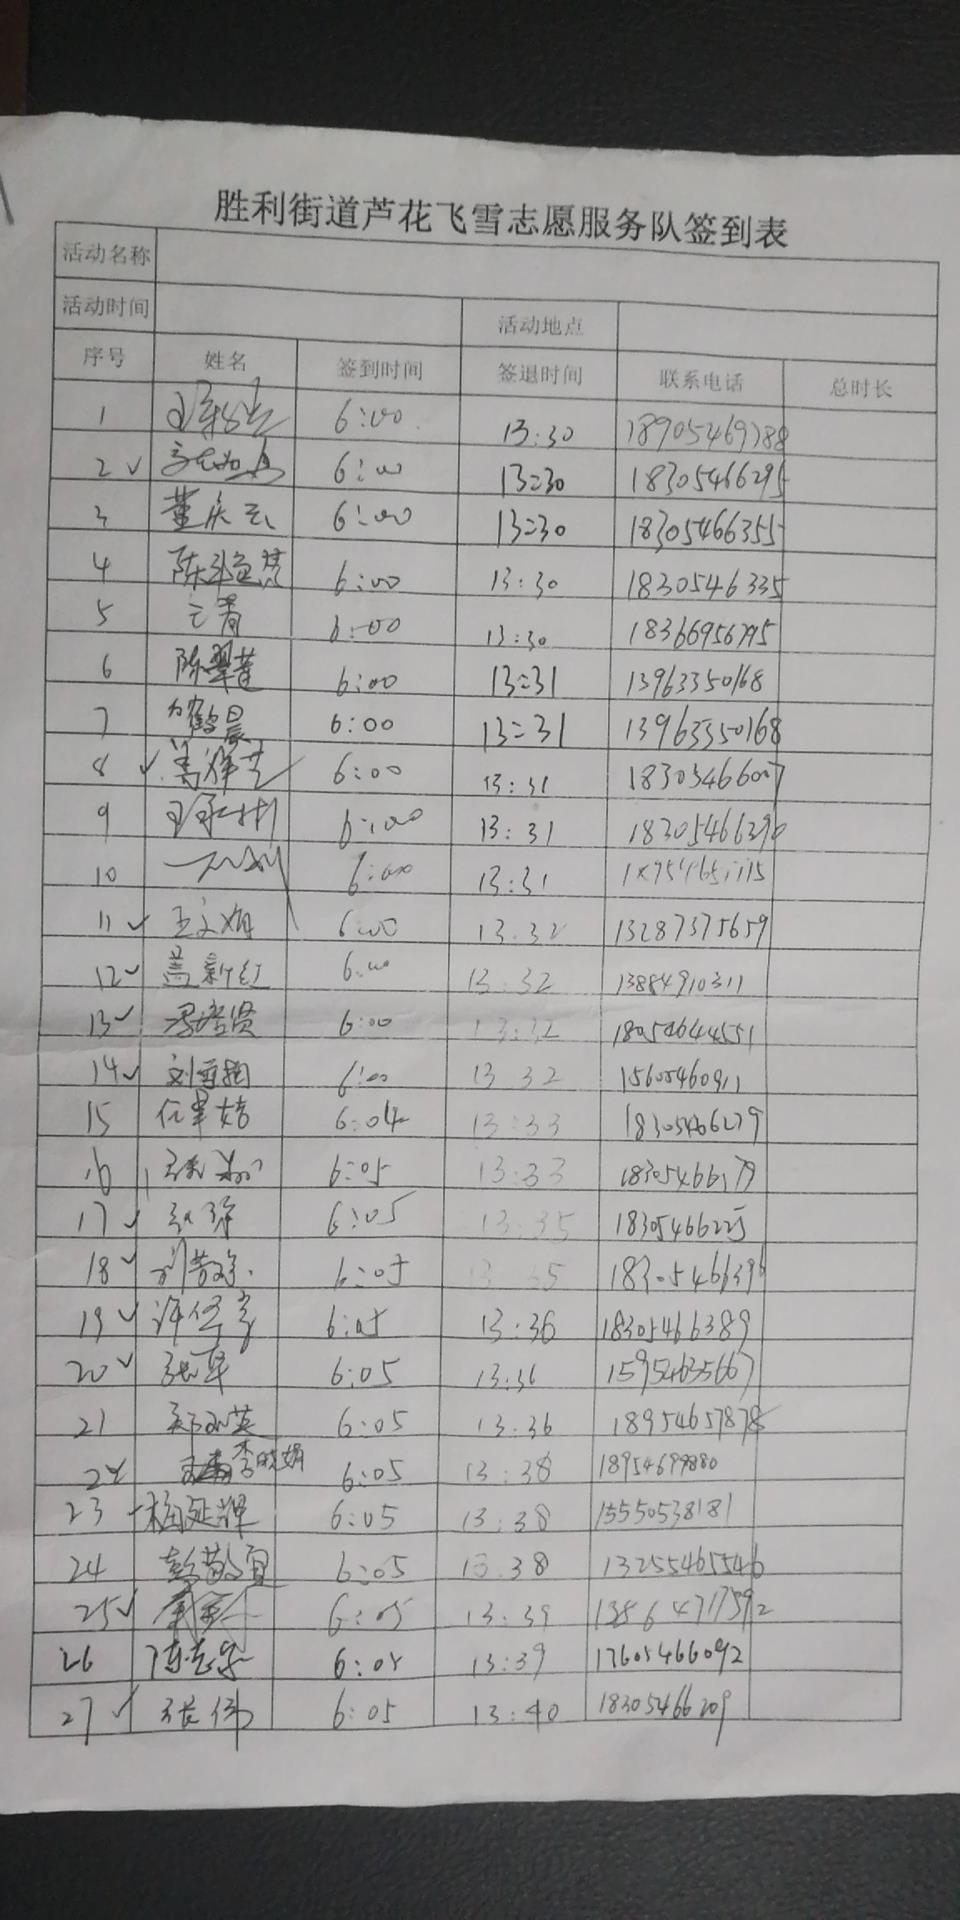 胜利街道芦花飞雪志愿服务队签到表
活动名称
活动时间 活动地点
序号 姓名 签到时间 签退时间 联系电话 总时长
1 6:00 13:30 18905469788
2 ✓ 6:00 13:30 18305466295
3 董庆云 6:00 13:30 18305466355
4 6:00 13:30 1830546335
5 王青 6:00 13:30 18366956795
6 陈翠莲 6:00 13:31 13963350168
7 6:00 13:31 13963350168
8 ✓ 6:00 13:31 18305466007
9 6:00 13:31 18305466290
10 6:00 13:31
11 ✓ 王文娟 6:00 13:32 13287375659
12 ✓ 盖新红 6:00 13:32 13884910311
13 ✓ 6:00 13:32 18054644551
14 ✓ 刘雪娟 6:00 13 32 15605460911
15 任翠姑 6:04 13:33 18305466279
16 6:05 13:33 18305466179
17 ✓ 6:05 13:35 18305466225
18 ✓ 6:05 18305466396
19 ✓ 许伶俐 6:05 13:36 18305466389
20 ✓ 张军 6:05 13:36 15954635667
21 郑玉英 6:05 13:36 18954657878
22 李晓娟 6:05 13:38 18954699880
23 杨延辉 6:05 13:38 15550538181
24 彭敬夏 6:05 13:38 13255465546
25 ✓ 6:05 13:39 13864717592
26 6:05 13:39 17605466092
27 ✓ 张伟 6:05 13:40 18305466209